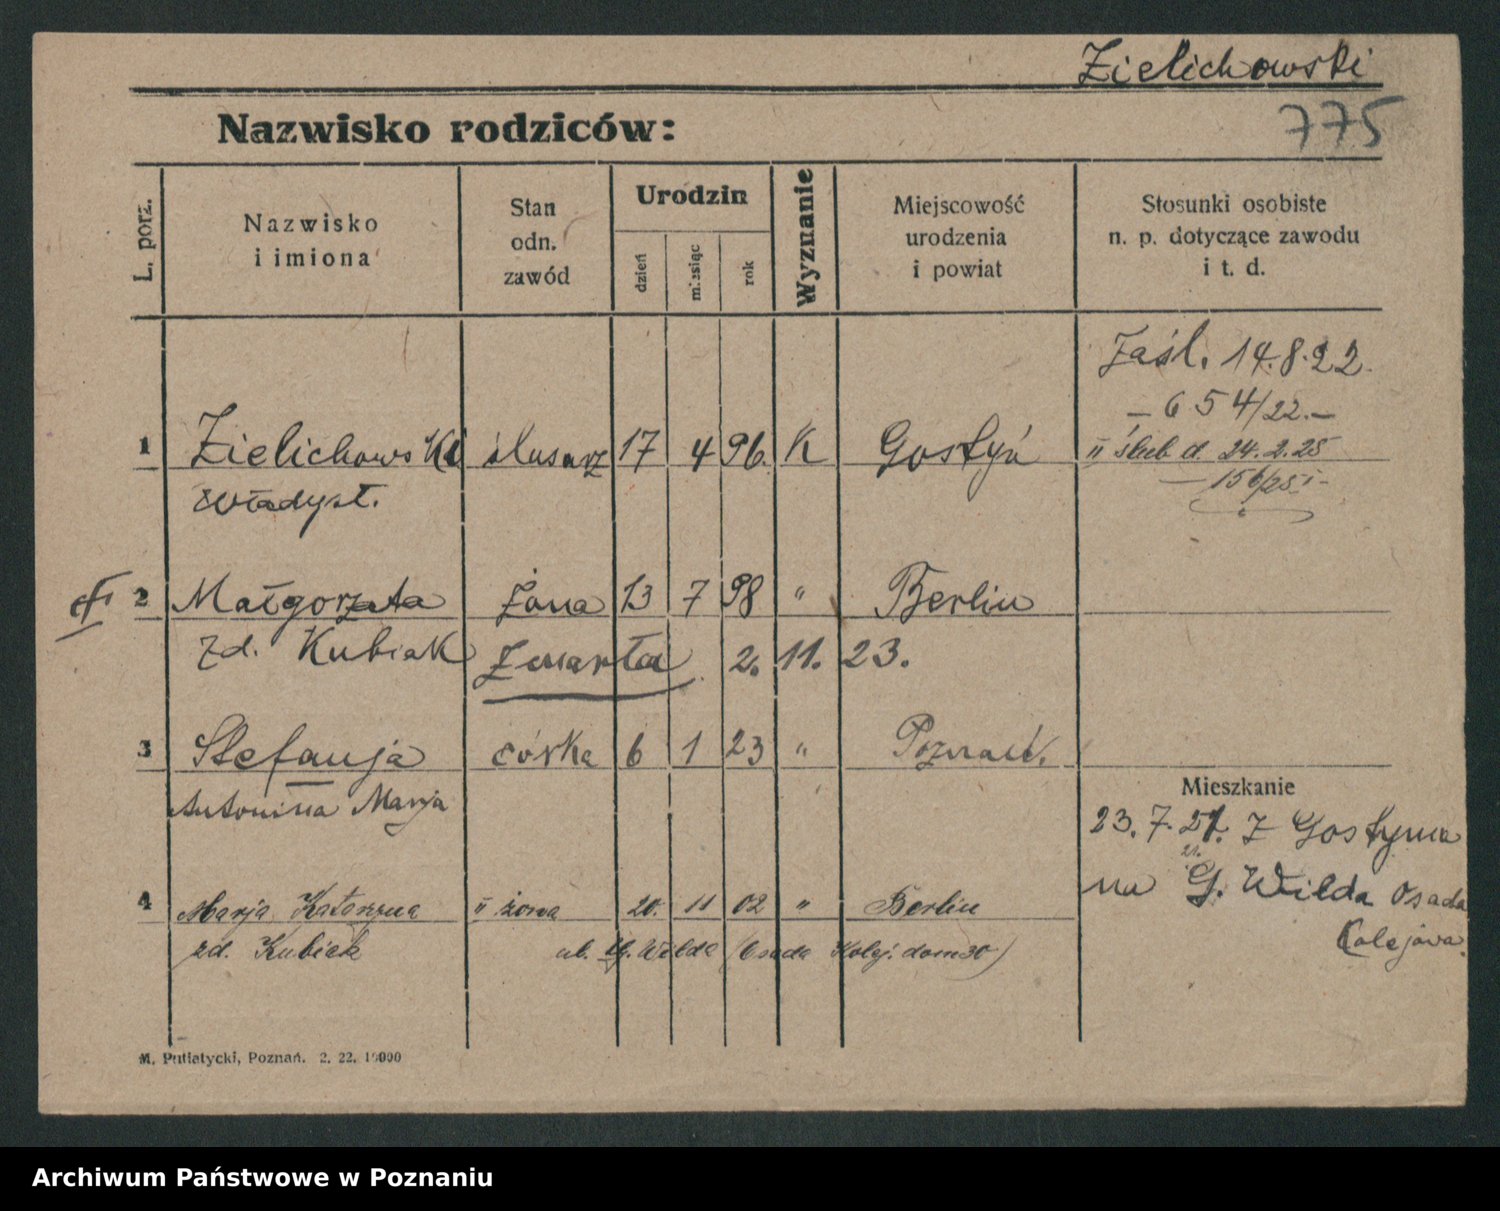 Zielichowski
775
Nazwisko rodziców:
L. porz.
Nazwisko
i imiona
Stan
odn.
zawód
Urodzin
dzień
miesiąc
rok
Wyznanie
Miejscowość
urodzenia
i powiat
Stosunki osobiste
n. p. dotyczące zawodu
i t. d.
Zaśl. 14.8.22.
— 654/22.—
1 Zielichowski ślusarz 17 4 96. K Gostyń
II ślub d. 24.2.25
— 156/25 I –
Władysł.
2 Małgorzata żona 13 7 98 " Berlin
zd. Kubiak Zmarła 2. 11. 23.
3 Stefanja córka 6 1 23 " Poznań.
Antonina Marja
Mieszkanie
23. 7. 21. Z Gostynia
21.
na G. Wilda Osada
Kolejowa.
4 Marja Katarzyna II żona 20. 11 02 " Berlin
zd. Kubiak ul. G. Wilda (Osada Kolej. dom 30)
M. Putiatycki, Poznań. 2. 22. 10000
Archiwum Państwowe w Poznaniu